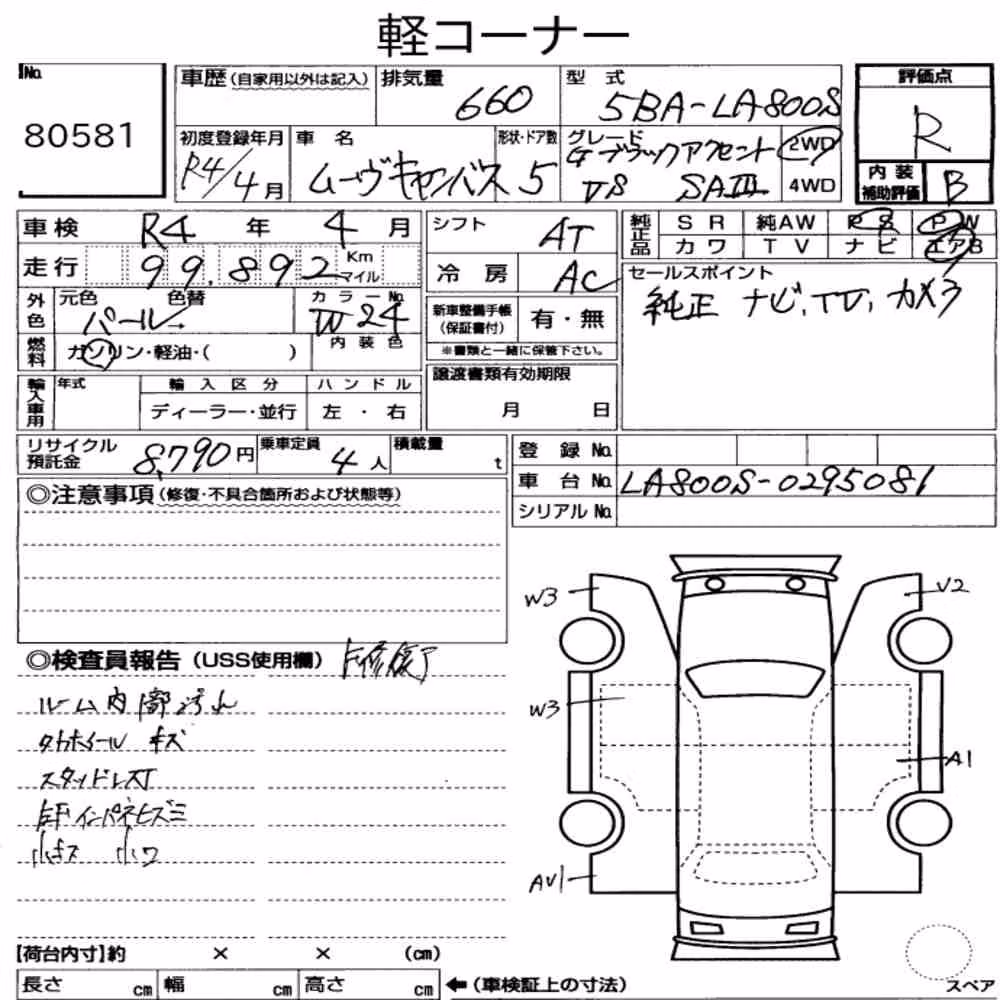 軽コーナー
No.
80581
車歴 (自家用以外は記入)
排気量 660
型式 5BA-LA800S
評価点
R
初度登録年月 R4/4月
車名 ムーヴキャンバス
形状・ドア数 5
グレード Gブラックアクセント VS SAIII
2WD
4WD
内装補助評価 B
車検 R4 年 4 月
シフト AT
純正品 SR 純AW PS PW
カワ TV ナビ エアB
走行 99,892 Km マイル
冷房 AC
セールスポイント
純正 ナビ、TV、カメラ
外色 元色 色替 パール
カラーNo. W24
新車整備手帳 (保証書付) 有・無
※書類と一緒に保管下さい。
燃料 ガソリン・軽油・( )
内装色
輸入車用 年式 輸入区分 ハンドル
ディーラー・並行 左・右
譲渡書類有効期限
月 日
リサイクル預託金 8,790円
乗車定員 4人
積載量 t
登録No.
車台No. LA800S-0295081
シリアルNo.
◎注意事項 (修復・不具合箇所および状態等)
◎検査員報告 (USS使用欄)
ルーム内部汚れ
タイヤホイール キズ
スタッドレス
インパネヒズミ
小キズ 小ワ
W3
V2
W3
A1
AV1
【荷台内寸】約 × × (cm)
長さ cm 幅 cm 高さ cm
←(車検証上の寸法)
スペア